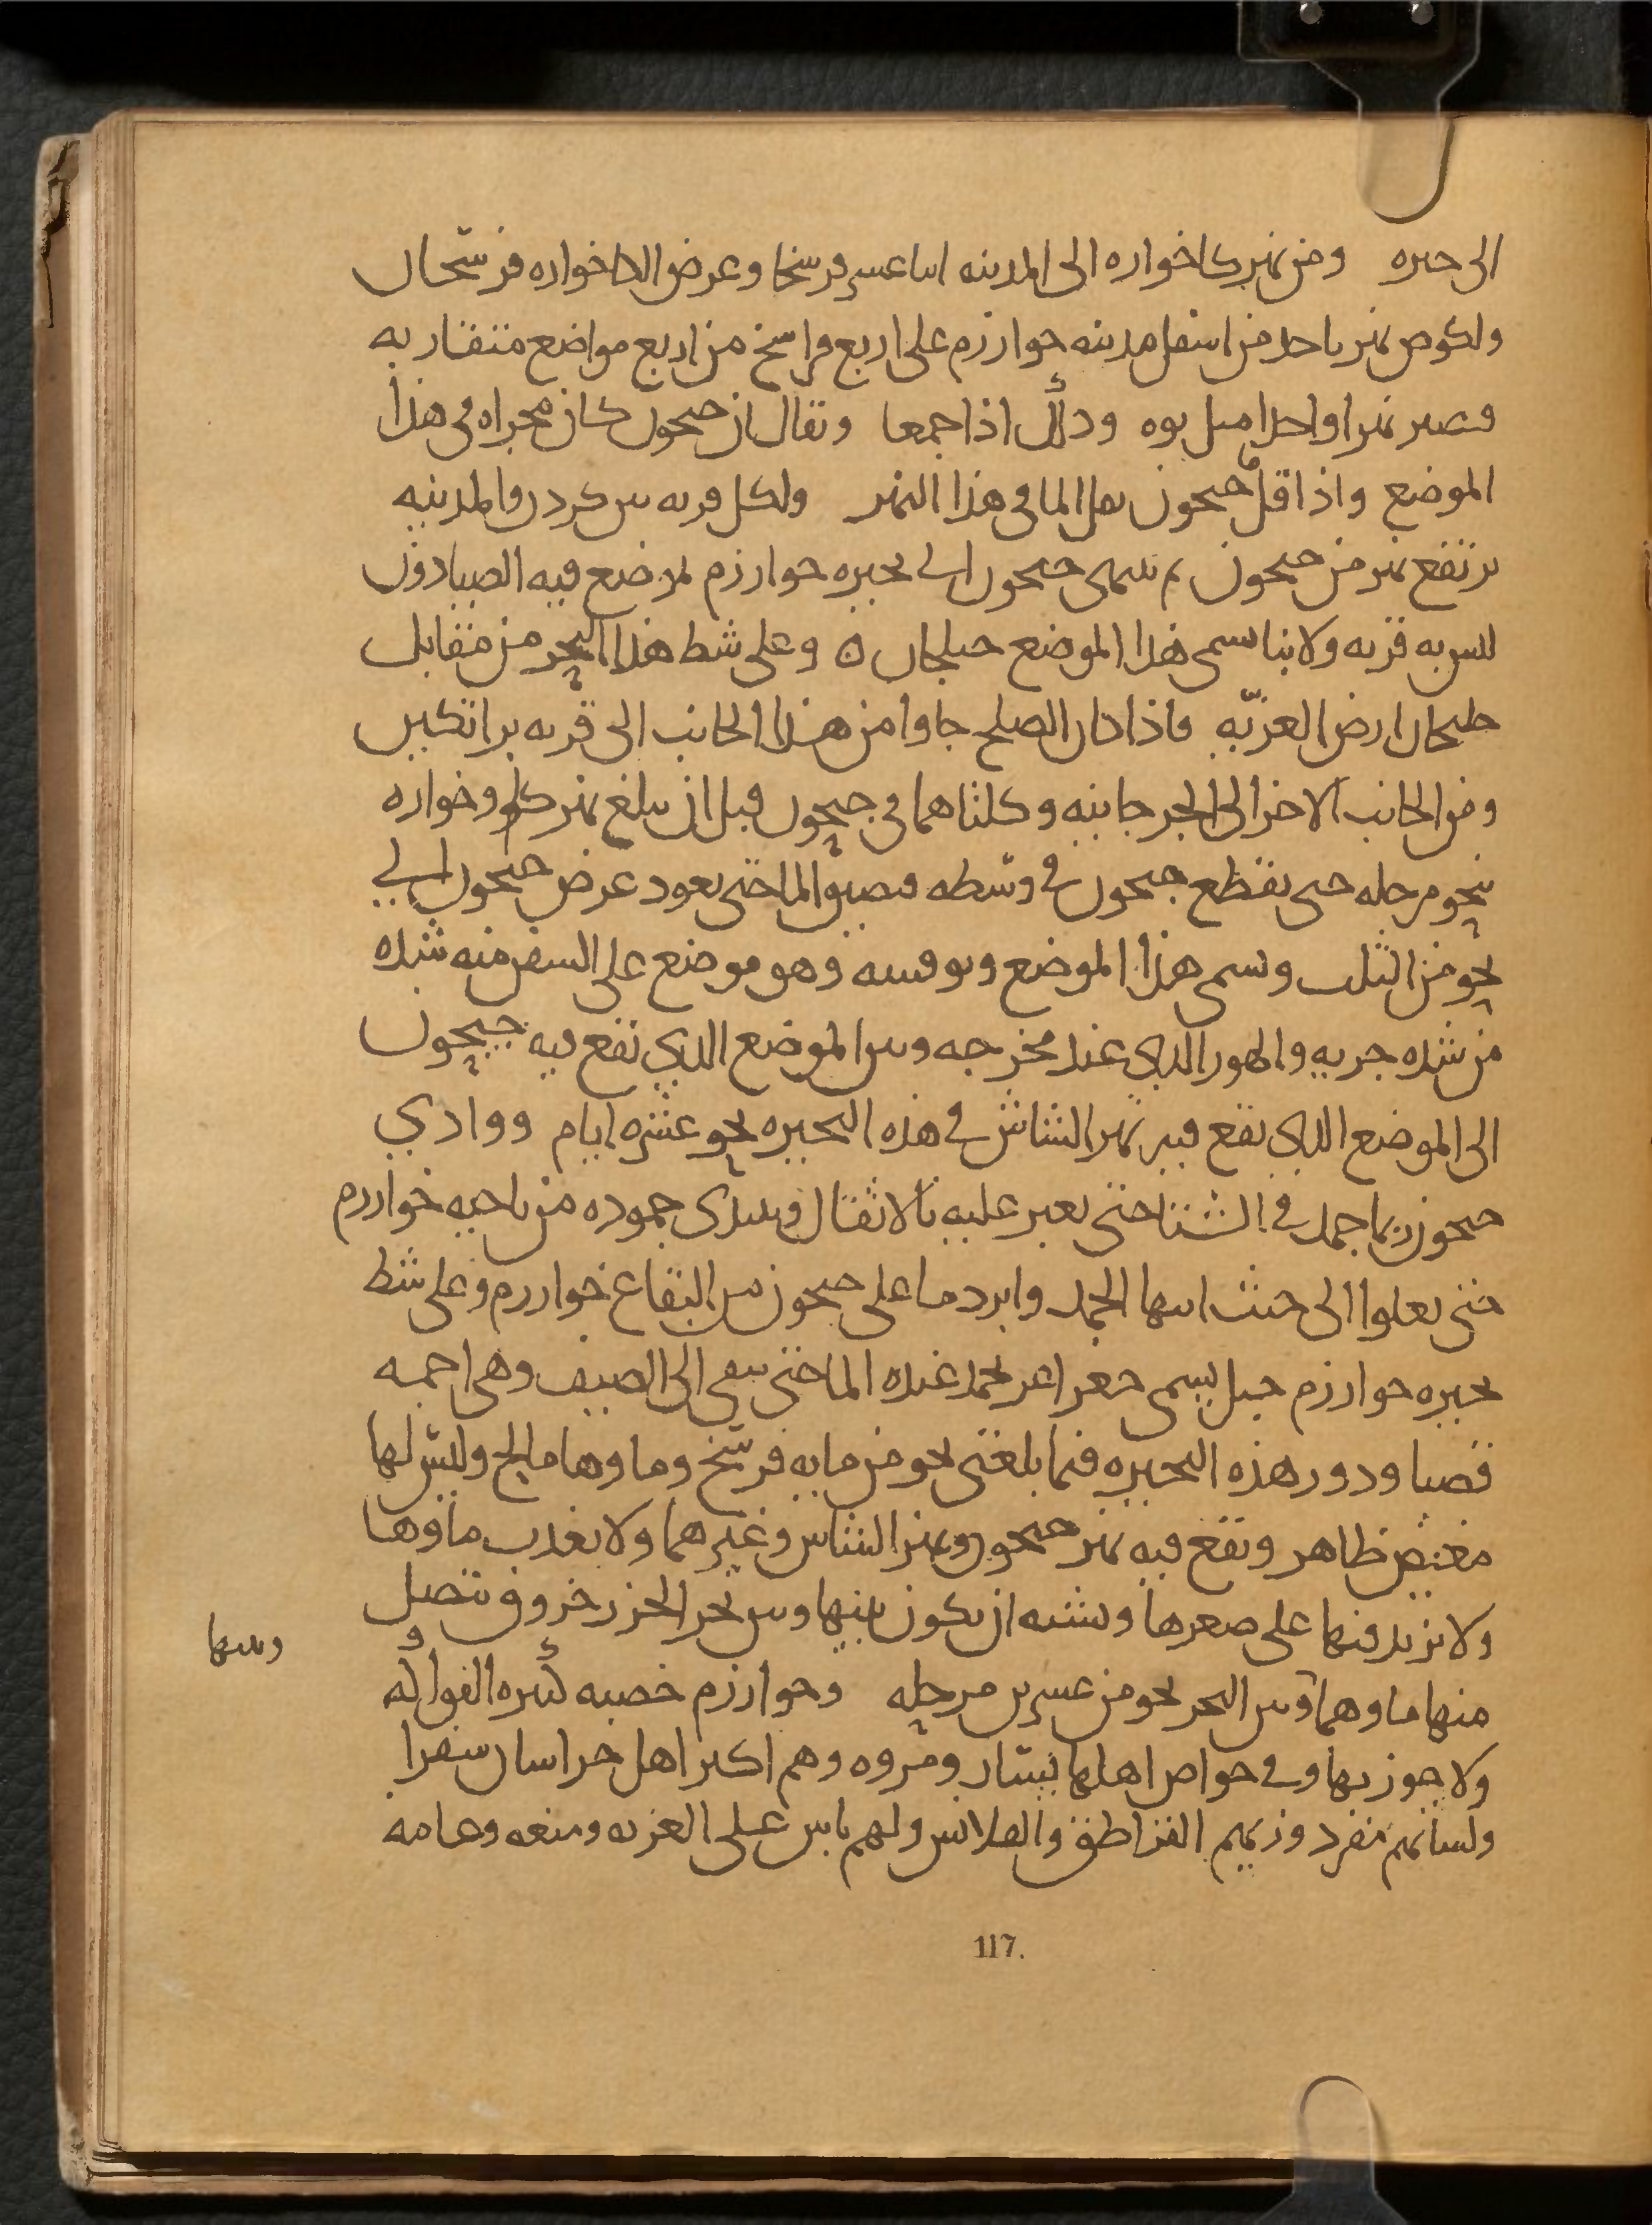 الى حيره ومن نهر كاخواره الى المدينه اثنا عشر فرسخا وعرض الكاخواره فرسخان
ولكوص نهر ياخد من اسفل مدينه خوارزم على اربع فراسخ من اربع مواضع متقاربه
فيصير نهرا واحدا مىل بوه ودال اذا جمعا ويقال ان جيحون كان مجراه في هذا
الموضع واذا قل جيحون يقل الما في هذا النهر ولكل قريه بين كردر والمدينه
يرتفع نهر من جيحون ثم يتسمى جيحون الى بحيره خوارزم لموضع فيه الصيادون
ليس به قريه ولا بنا يسمى هذا الموضع خليجان ه وعلى شط هذا البحر من مقابل
خليجان ارض الغزيه فاذا كان الصلح جاوا من هذا الجانب الى قريه براتكين
ومن الجانب الاخر الى الجرجانيه وكلتاهما في جيحون قبل ان يبلغ نهر كاوخواره
بنحو مرحله حتى يقطع جيحون في وسطه فيضيق الما حتى يعود عرض جيحون الى
نحو من الثلث ويسمى هذا الموضع وبوقيسه وهو موضع على السفن منه شده
من شده جريه والهور الذي عند مخرجه وبين الموضع الذي تقع فيه جيحون
الى الموضع الذي يقع فيه نهر الشاش في هذه البحيره نحو عشره ايام ووادي
جيحون ربما جمد في الشتا حتى يعبر عليه بالاثقال ويبتدى جموده من ناحيه خوارزم
حتى يعلوا الى حيث انتهى الجمد وابرد ما على جيحون من البقاع خوارزم وعلى شط
بحيره خوارزم جبل يسمى جغراغر يجمد عنده الما حتى يبقى الى الصيف وهي اجمه
قصبا ودور هذه البحيره فيما بلغني نحو من مايه فرسخ وماوها مالح وليس لها
مغيض ظاهر ويقع فيه نهر جيحون ونهر الشاش وغيرهما ولا يعذب ماوها
ولا يزيد فيها على صغرها ويشبه ان يكون بينها وبين بحر الخزر خروق تتصل
منها ماوهما وبين البحر نحو من عشرين مرحله وخوارزم خصبه كثيره الفواكه
وبينها
ولا جوز بها وفي خواص اهلها يسار ومروه وهم اكثر اهل خراسان سفرا
ولسانهم منفرد وزيهم القراطق والقلانس ولهم باس على الغزيه ومنعه وهامه
117.